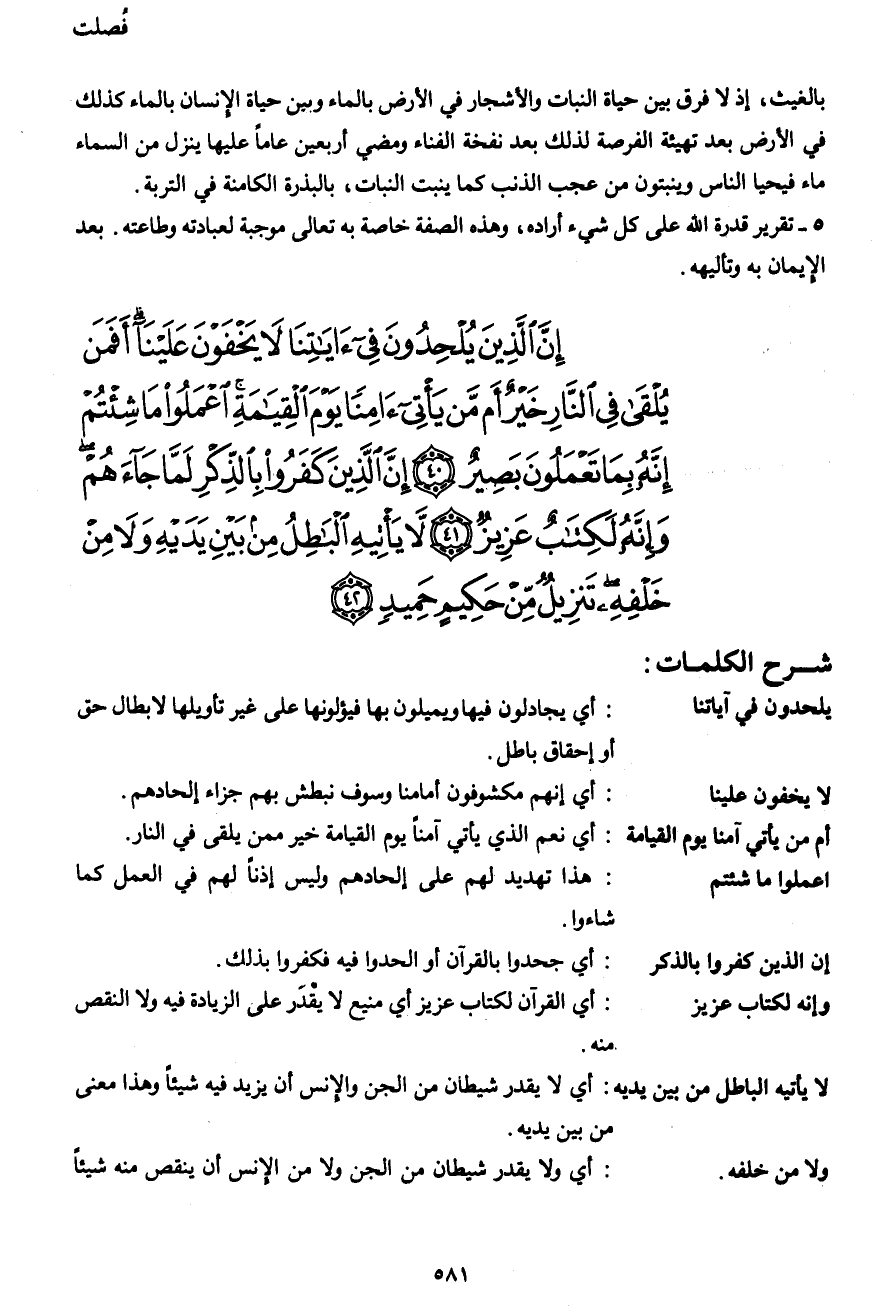 فُصلت
بالغيث، إذ لا فرق بين حياة النبات والأشجار في الأرض بالماء وبين حياة الإنسان بالماء كذلك
في الأرض بعد تهيئة الفرصة لذلك بعد نفخة الفناء ومضي أربعين عاماً عليها ينزل من السماء
ماء فيحيا الناس وينبتون من عجب الذنب كما ينبت النبات، بالبذرة الكامنة في التربة.
٥ ـ تقرير قدرة الله على كل شيء أراده، وهذه الصفة خاصة به تعالى موجبة لعبادته وطاعته. بعد
الإيمان به وتأليهه.
إِنَّ ٱلَّذِينَ يُلْحِدُونَ فِىٓ ءَايَٰتِنَا لَا يَخْفَوْنَ عَلَيْنَآ ۗ أَفَمَن
يُلْقَىٰ فِى ٱلنَّارِ خَيْرٌ أَم مَّن يَأْتِىٓ ءَامِنًا يَوْمَ ٱلْقِيَٰمَةِ ۚ ٱعْمَلُوا۟ مَا شِئْتُمْ
إِنَّهُۥ بِمَا تَعْمَلُونَ بَصِيرٌ ٤٠ إِنَّ ٱلَّذِينَ كَفَرُوا۟ بِٱلذِّكْرِ لَمَّا جَآءَهُمْ ۖ
وَإِنَّهُۥ لَكِتَٰبٌ عَزِيزٌ ٤١ لَّا يَأْتِيهِ ٱلْبَٰطِلُ مِنۢ بَيْنِ يَدَيْهِ وَلَا مِنْ
خَلْفِهِۦ ۖ تَنزِيلٌ مِّنْ حَكِيمٍ حَمِيدٍ ٤٢
شـرح الكلمـات :
يلحدون في آياتنا : أي يجادلون فيها ويميلون بها فيؤولونها على غير تأويلها لابطال حق
أو إحقاق باطل.
لا يخفون علينا : أي إنهم مكشوفون أمامنا وسوف نبطش بهم جزاء إلحادهم.
أم من يأتي آمنا يوم القيامة : أي نعم الذي يأتي آمناً يوم القيامة خير ممن يلقى في النار.
اعملوا ما شئتم : هذا تهديد لهم على إلحادهم وليس إذناً لهم في العمل كما
شاءوا.
إن الذين كفروا بالذكر : أي جحدوا بالقرآن أو الحدوا فيه فكفروا بذلك.
وإنه لكتاب عزيز : أي القرآن لكتاب عزيز أي منيع لا يقْدَر على الزيادة فيه ولا النقص
منه.
لا يأتيه الباطل من بين يديه : أي لا يقدر شيطان من الجن والإنس أن يزيد فيه شيئاً وهذا معنى
من بين يديه.
ولا من خلفه. : أي ولا يقدر شيطان من الجن ولا من الإنس أن ينقص منه شيئاً
٥٨١